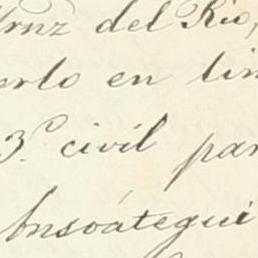 Arnz del Rio,
erto en tin
3.º civil par
Insoátegui